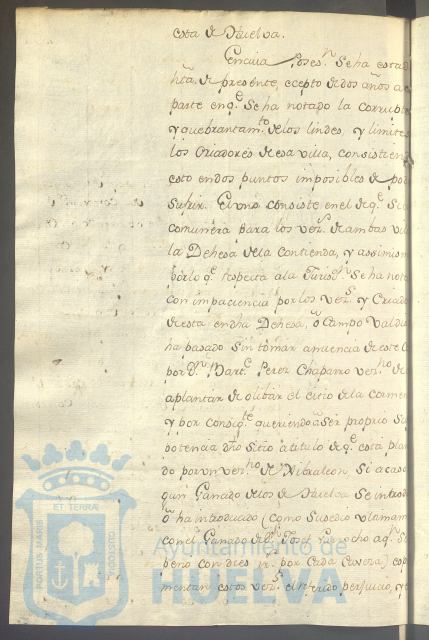 esta de Huelva.
En cuia Poses.n Se ha estad
hta. de presente, ecepto de dos años a
parte en q.e Se ha notado la corrupt
y quebrantam.to de los lindes, y limites
los Criadores de esa villa, consistien
esto en dos puntos imposibles de pod
Sufrir. El uno consiste en el de q.e Si
comunera para los vez.s de ambas vill
la Dehesa de la Contienda, y assimism
por lo q.e respecta a la Jurisd.n Se ha not
con impaciencia por los vez.s y Criado
de esta en dha Dehesa, ô Campo Valdio
ha pasado Sin tomar anuencia de este C
por D.n Bart.e Perez Chaparro vez.no de
a plantar de olibar el citio de la
y por consig.te queriendo Ser proprio Su
potencia dho Sitio a titulo de q.e está plan
do por un vez.no de Xibraleon Si acaso
gun Ganado de los de Huelva Se introd
ô ha introducido (como Susedio ultimam
con el Ganado de D.n Josef
peno con dies por Cada Cavera) esp
mentan estos vez.s el referido perjuicio, y
PORTUS MARIS
ET TERRAE
CUSTODIA
Ayuntamiento de
HUELVA